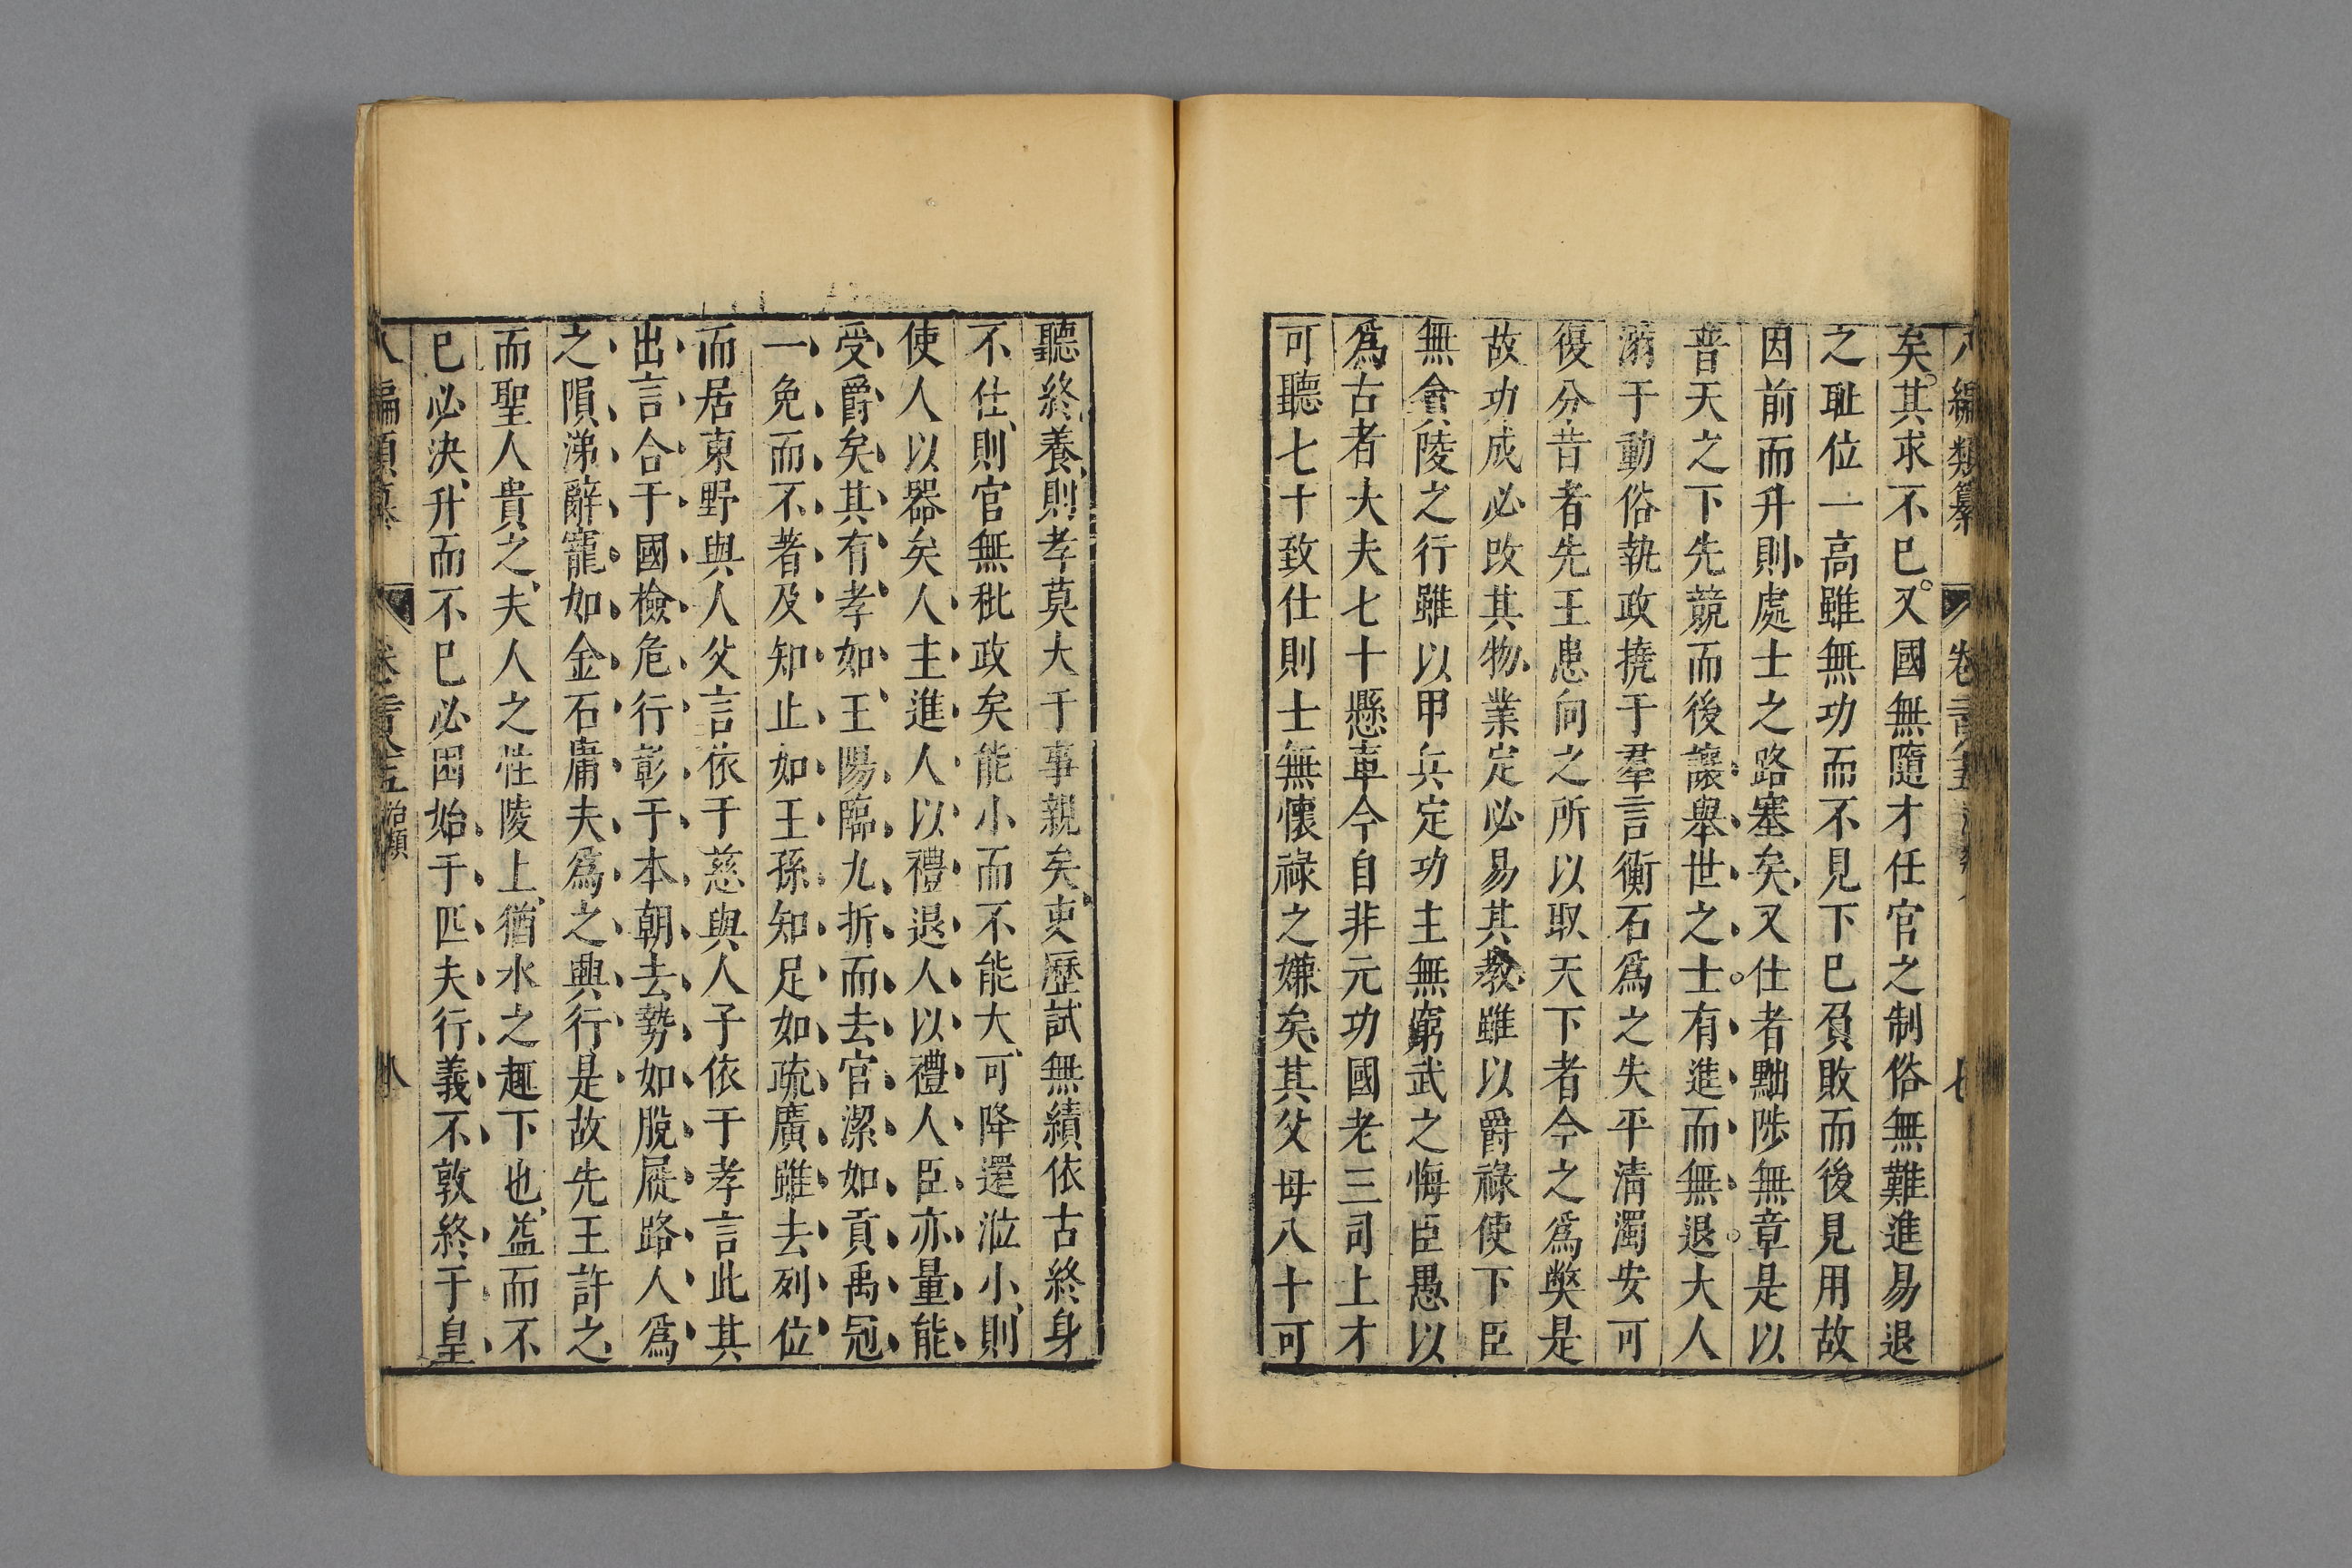 八編類纂 卷 七
矣其求不已又國無隨才任官之制俗無難進易退
之耻位一高雖無功而不見下已負敗而後見用故
因前而升則處士之路塞矣又仕者黜陟無章是以
普天之下先競而後讓舉世之士有進而無退大人
溺于動俗執政撓于羣言衡石爲之失平清濁安可
復分昔者先王患向之所以取天下者今之爲獘是
故功成必改其物業定必易其教雖以爵祿使下臣
無貪陵之行雖以甲兵定功主無窮武之悔臣愚以
爲古者大夫七十懸車今自非元功國老三司上才
可聽七十致仕則士無懷祿之嫌矣其父母八十可
聽終養則孝莫大于事親矣吏歷試無績依古終身
不仕則官無秕政矣能小而不能大可降還涖小則
使人以器矣人主進人以禮退人以禮人臣亦量能
受爵矣其有孝如王陽臨九折而去官潔如貢禹冠
一免而不著及知止如王孫知足如疏廣雖去列位
而居東野與人父言依于慈與人子依于孝言此其
出言合于國檢危行彰于本朝去勢如脫屣路人爲
之隕涕辭寵如金石庸夫爲之興行是故先王許之
而聖人貴之夫人之性陵上猶水之趣下也益而不
已必決升而不已必困始于匹夫行義不敦終于皇
八編類纂 卷 治類 八